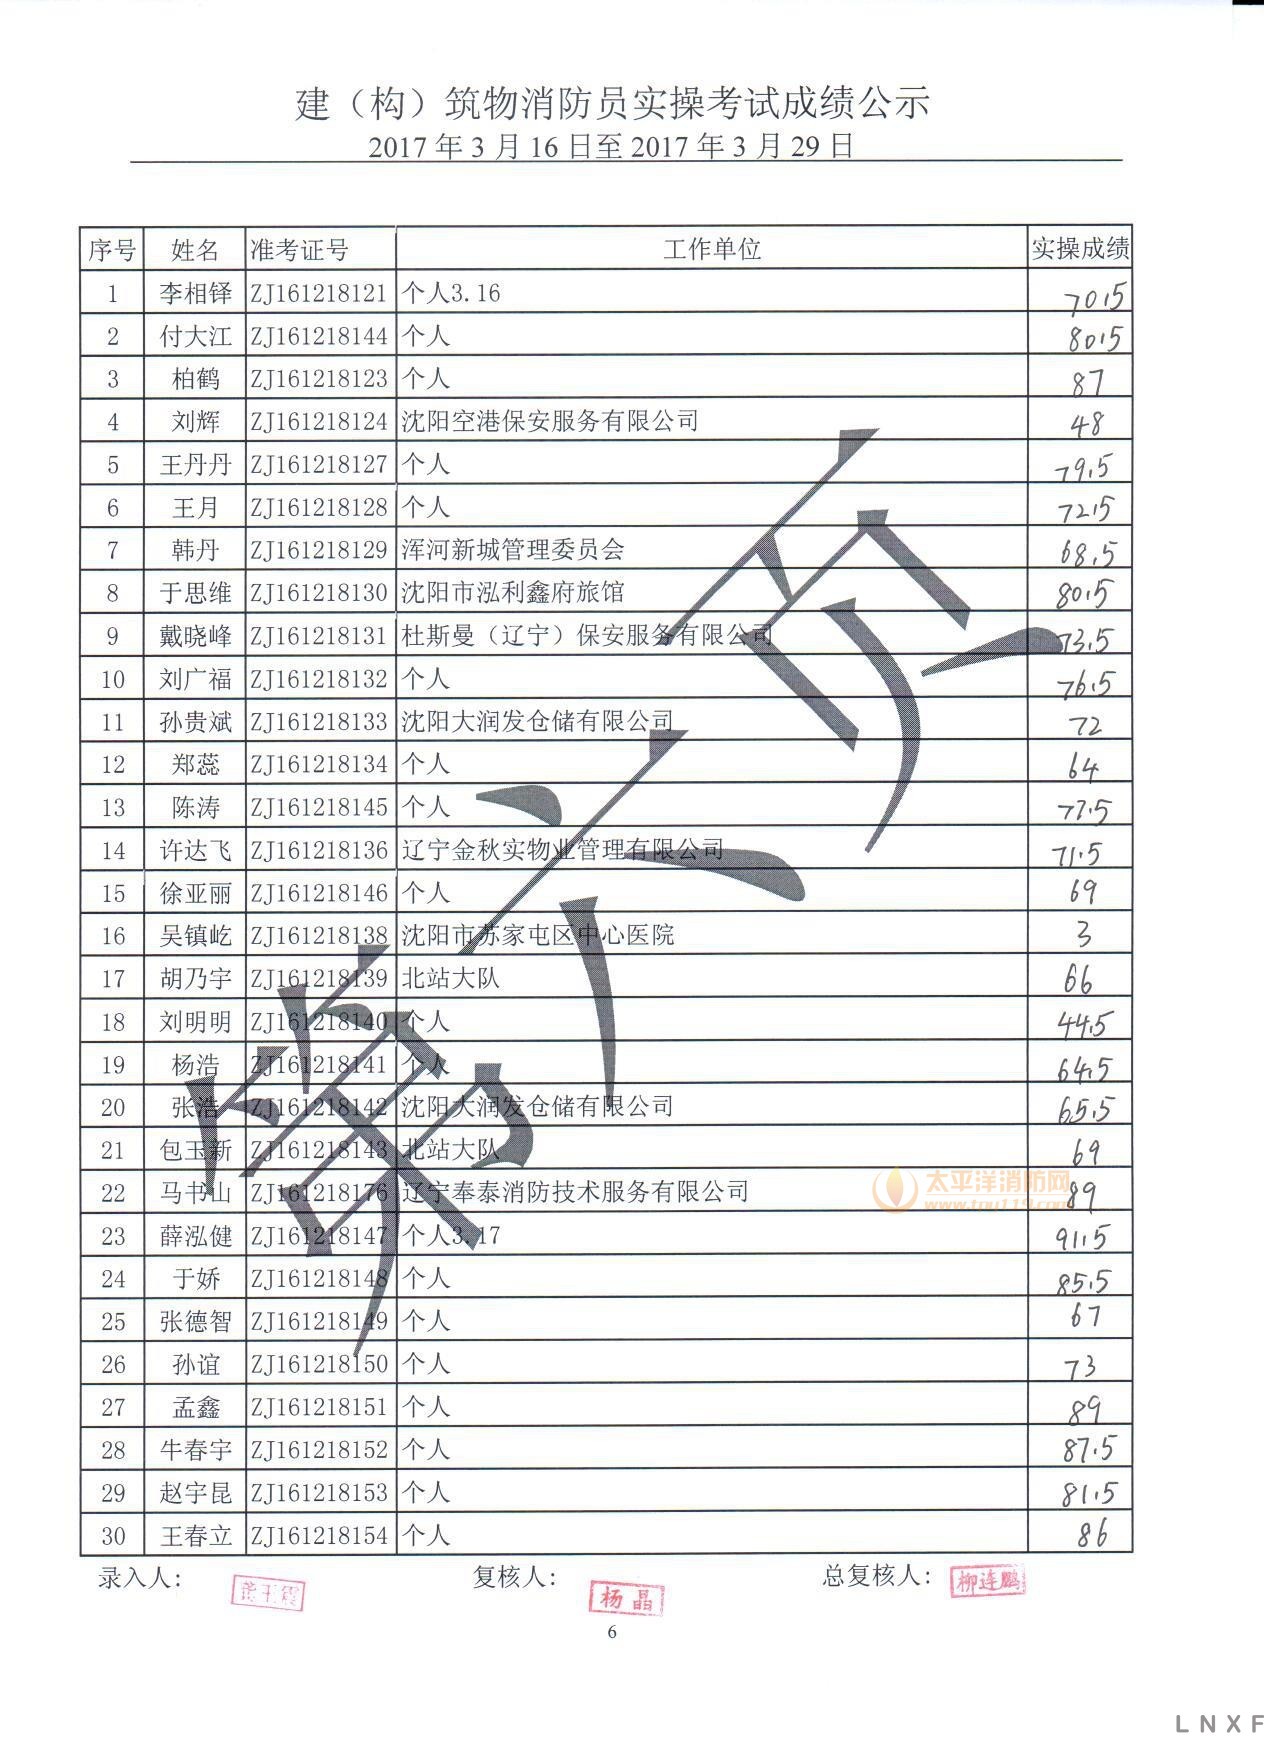 建（构）筑物消防员实操考试成绩公示
2017年3月16日至2017年3月29日
序号 姓名 准考证号 工作单位 实操成绩
1 李相铎 ZJ161218121 个人3.16 70.5
2 付大江 ZJ161218144 个人 80.5
3 柏鹤 ZJ161218123 个人 87
4 刘辉 ZJ161218124 沈阳空港保安服务有限公司 48
5 王丹丹 ZJ161218127 个人 79.5
6 王月 ZJ161218128 个人 72.5
7 韩丹 ZJ161218129 浑河新城管理委员会 68.5
8 于思维 ZJ161218130 沈阳市泓利鑫府旅馆 80.5
9 戴晓峰 ZJ161218131 杜斯曼（辽宁）保安服务有限公司 73.5
10 刘广福 ZJ161218132 个人 76.5
11 孙贵斌 ZJ161218133 沈阳大润发仓储有限公司 72
12 郑蕊 ZJ161218134 个人 64
13 陈涛 ZJ161218145 个人 77.5
14 许达飞 ZJ161218136 辽宁金秋实物业管理有限公司 71.5
15 徐亚丽 ZJ161218146 个人 69
16 吴镇屹 ZJ161218138 沈阳市苏家屯区中心医院 3
17 胡乃宇 ZJ161218139 北站大队 66
18 刘明明 ZJ161218140 个人 44.5
19 杨浩 ZJ161218141 个人 64.5
20 张浩 ZJ161218142 沈阳大润发仓储有限公司 65.5
21 包玉新 ZJ161218143 北站大队 69
22 马书山 ZJ161218176 辽宁奉泰消防技术服务有限公司 89
23 薛泓健 ZJ161218147 个人3.17 91.5
24 于娇 ZJ161218148 个人 85.5
25 张德智 ZJ161218149 个人 67
26 孙谊 ZJ161218150 个人 73
27 孟鑫 ZJ161218151 个人 89
28 牛春宇 ZJ161218152 个人 87.5
29 赵宇昆 ZJ161218153 个人 81.5
30 王春立 ZJ161218154 个人 86
第六页
太平洋消防网
www.tpy119.com
录入人： 复核人： 总复核人：
杨晶 柳连鹏
6
LNXF